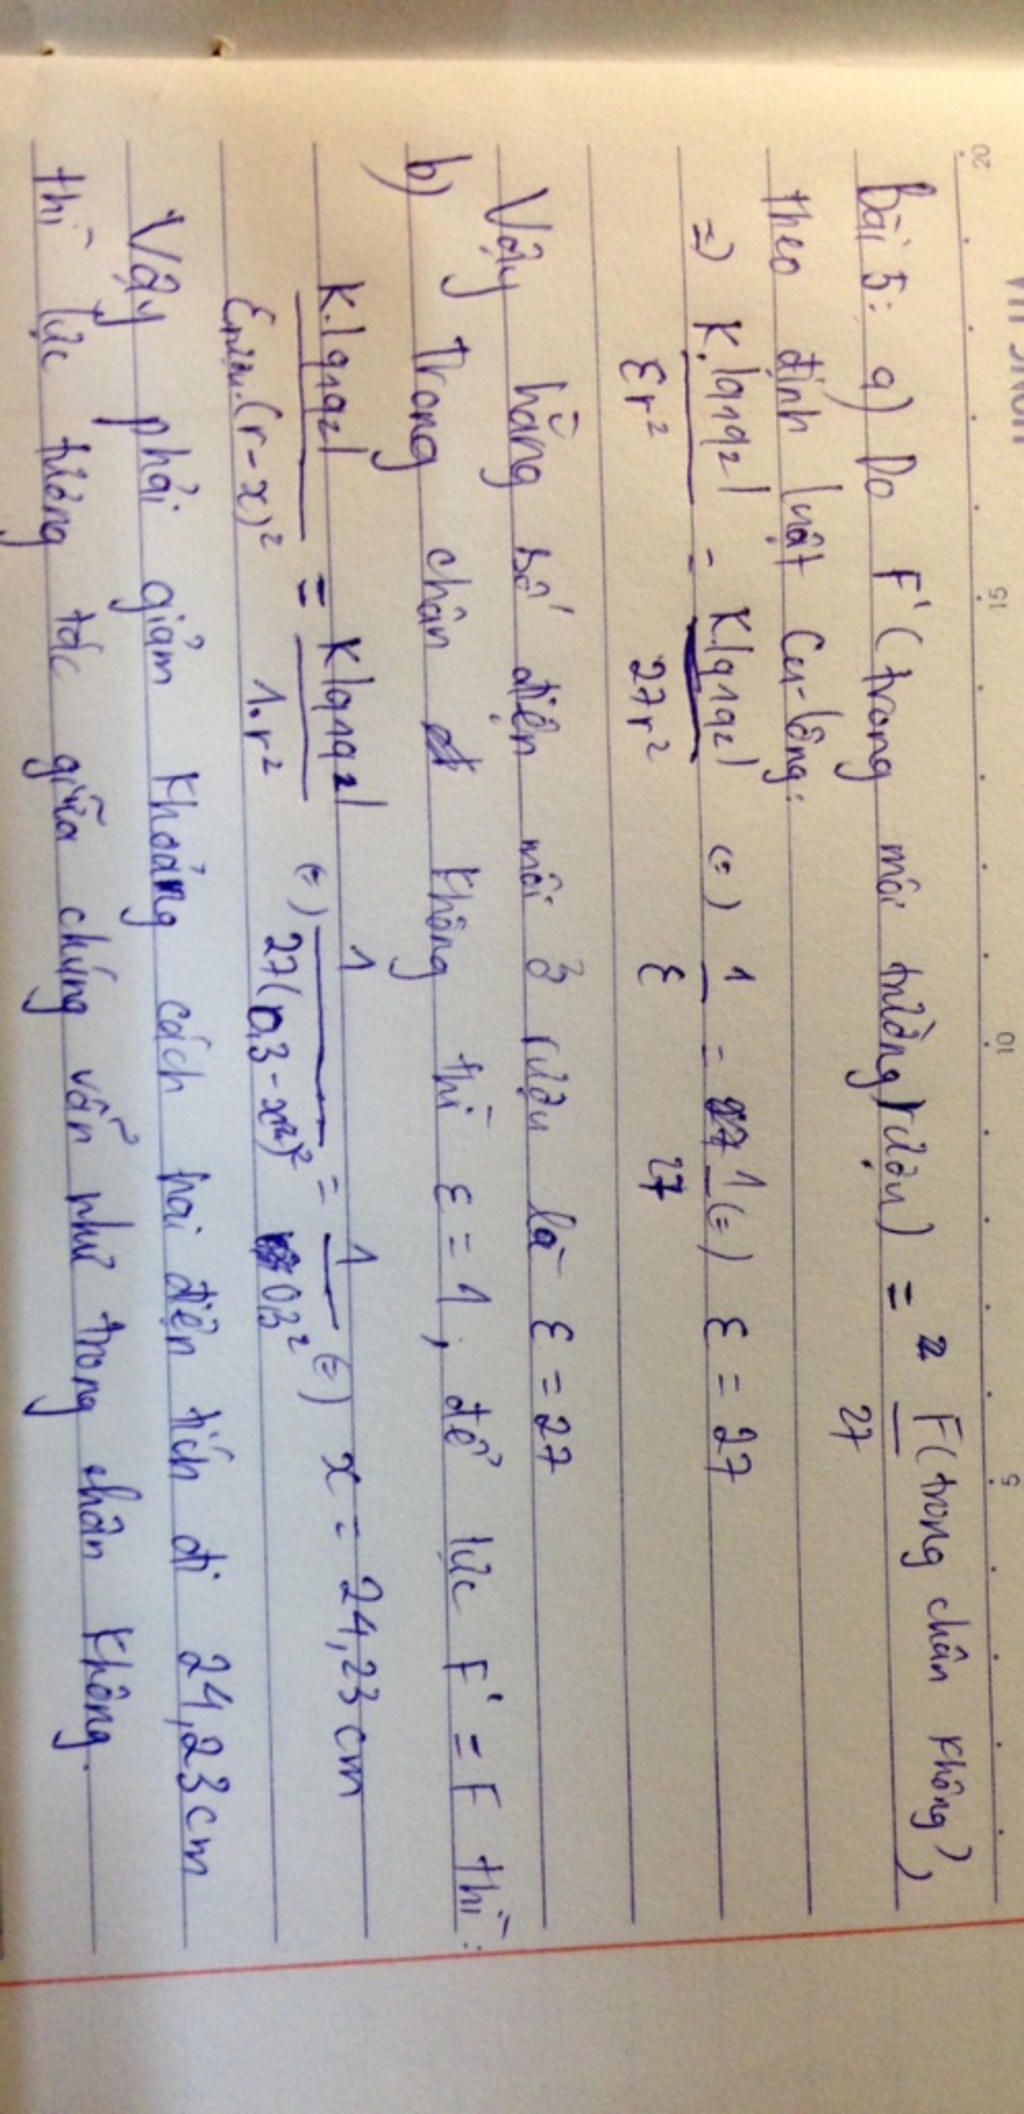 20 15 10 5
Bài 5: a) Do F'(trong môi trường rượu) = F(trong chân không),
27
theo định luật Cu-lông:
=> K.|q1q2| = K.|q1q2| (=) 1 = 1 (=) ε = 27
εr² 27r² ε 27
Vậy hằng số điện môi ở rượu là ε = 27
b) Trong chân không thì ε = 1, để lực F' = F thì:
K.|q1q2| = K|q1q2| (=) 1 = 1 (=) x = 24,23 cm
.(r-x)² 1.r² 27(0,3-x)² 0,3²
Vậy phải giảm khoảng cách hai điện tích đi 24,23cm
thì lực tương tác giữa chúng vẫn như trong chân không.